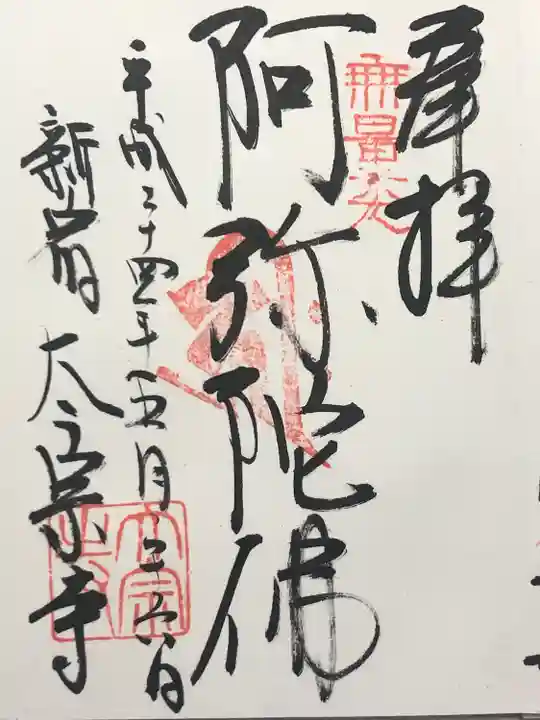 奉拝
無量光
阿弥陀佛
平成二十四年五月二十六日
新宿 太宗寺
太宗